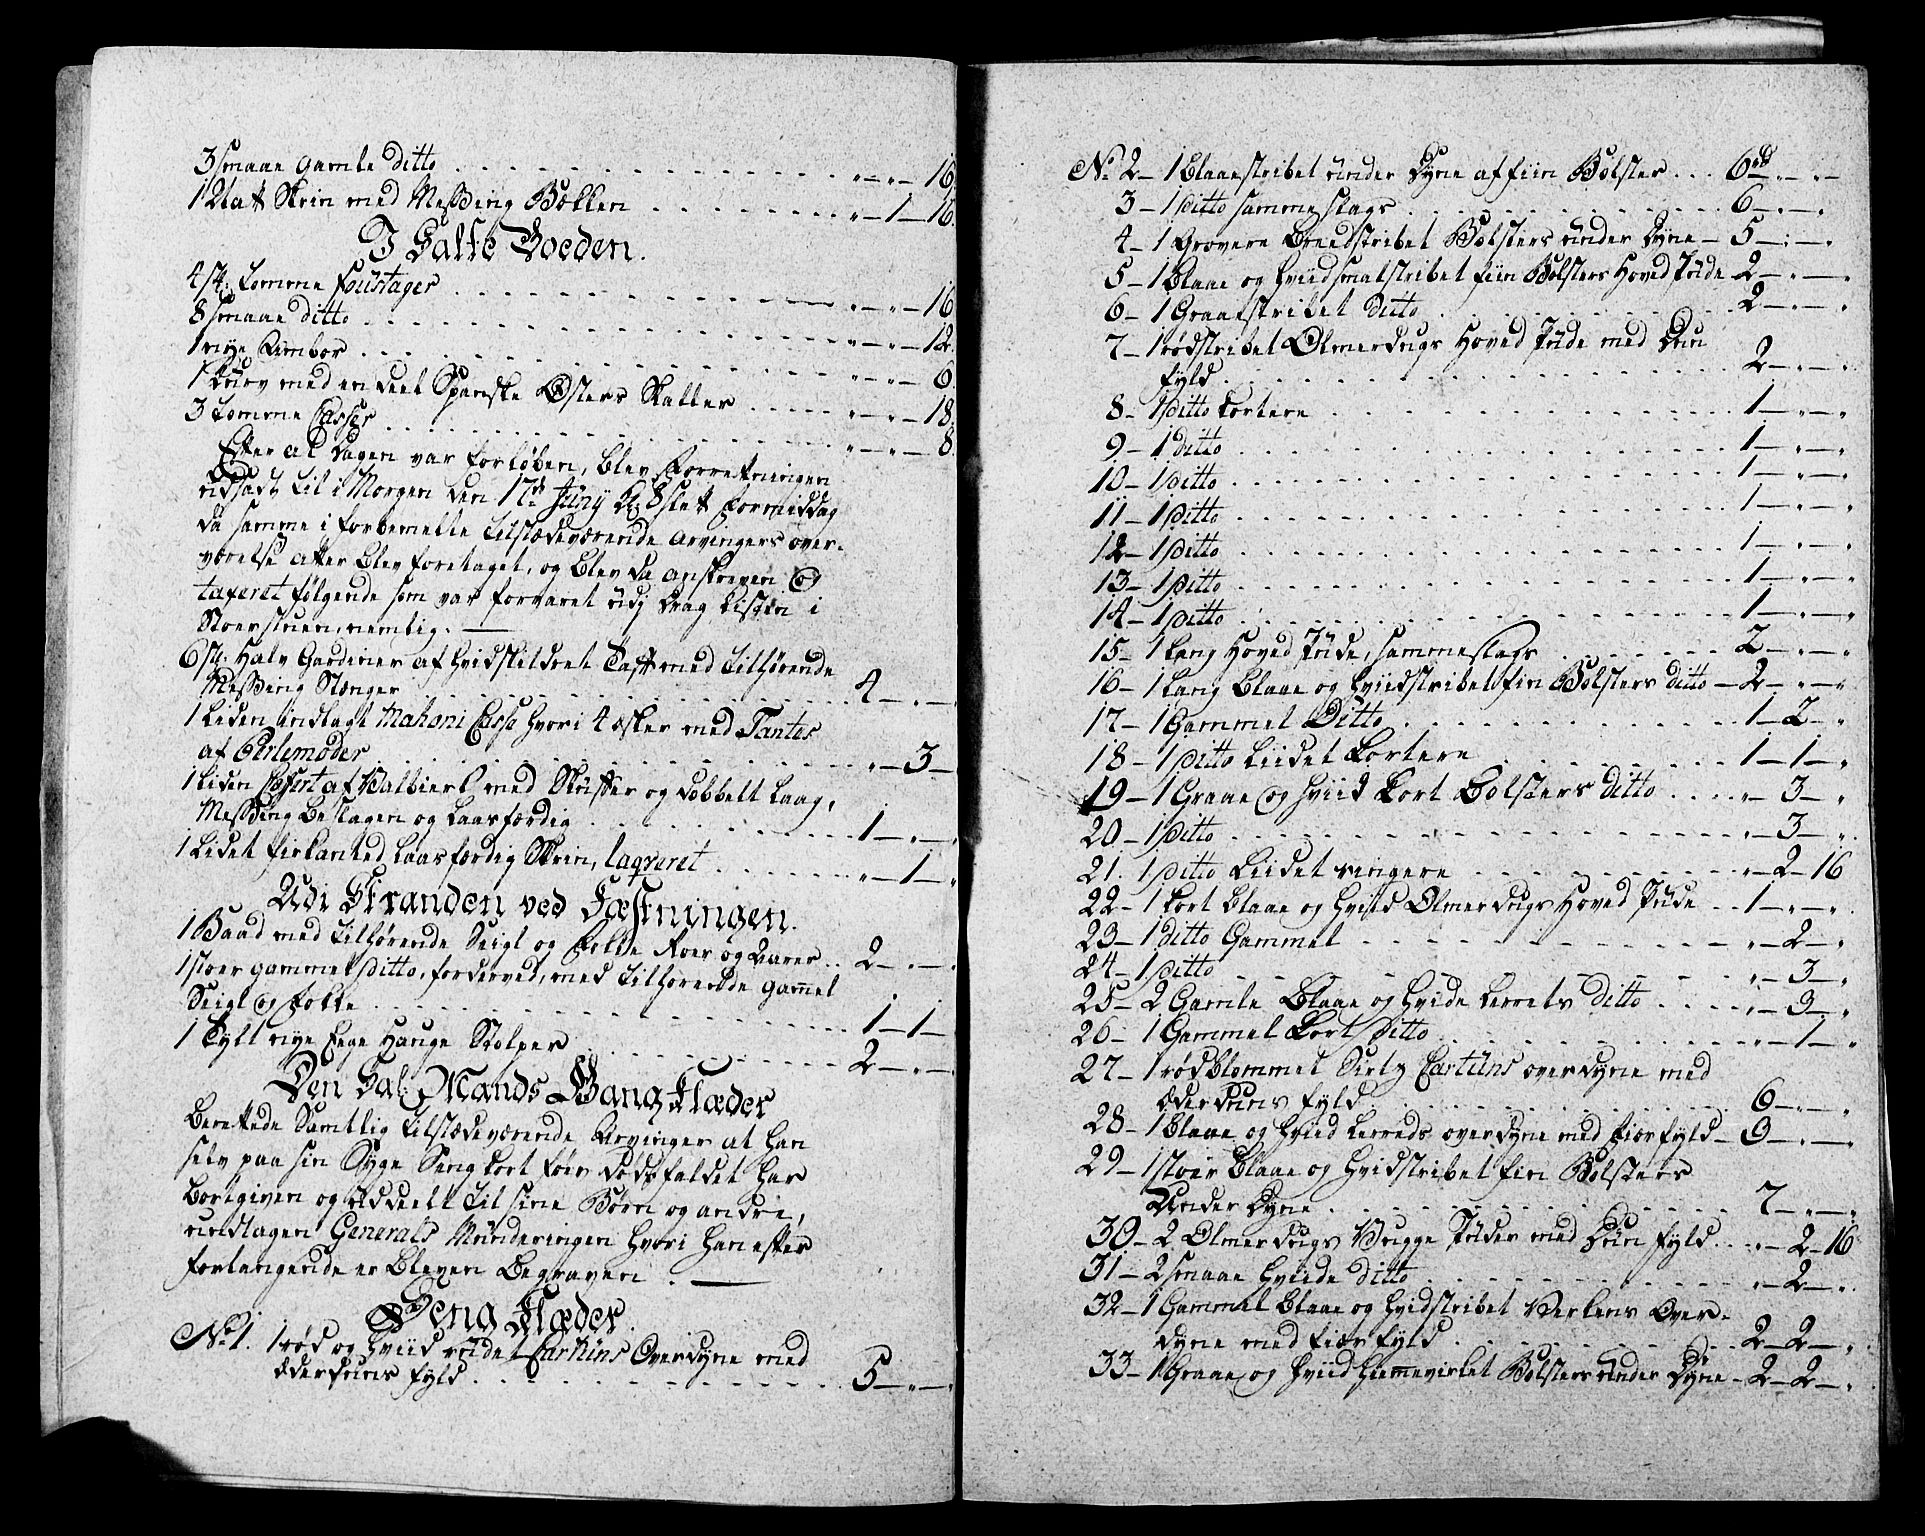 3 smaae gamle ditto . . . „—„— 16.
1 Natt Skrin med Messing Bekken . . . „— 1 — 16.
I Salte Boeden.
4 st: tomme Foustager . . . „—„— 16
8 smaae ditto . . . „—„— 12.
1 nye Rimbor . . . „—„— 6.
1 Kurv med en deel Spanske Østers Skaller . . . „—„— 18.
3 tomme Casser . . . „—„— 8.
Efter at Dagen var forløben, blev Forretningen
udsadt til i Morgen den 17de Junij Kl: 8 slet Formiddag
da samme i forbemelte tilstædeværende Arvingers over-
værelse atter blev foretaget, og blev da anskreven og
taxeret følgende som var forvaret udj Drag Kisten i
Stoer stuen, nemlig. —
6 st: Halv Gardiner af hvidskildret Taft med tilhørende
Messing Stænger . . . 4 —„—„
1 Liden indlagt Mahoni Casse hvori 4 æsker med Tantes
af Perlemoder . . . „— 3 —
1 Liden Cofert af Valbierk med Skuffer og dobbelt Laag,
Messing beslagen og laasfærdig . . . 1 —„—„
1 Lidet firkanted laasfærdig Skrin, laqveret . . . „— 1 —„
Udi Stranden ved Fæstningen.
1 Baad med tilhørende Seigl og Fokke Roer og Aarer . . 2 —„—„
1 stoer gammel ditto, fordervet, med tilhørende gammel
Seigl og Fokke . . . 1 — 1 —„
1 Tylt nye Eege Hauge Stolper . . . 2 —„—„
Den Sal: Mands Gang Klæder
Berettede Samtlig tilstædeværende Arvinger at han
selv paa sin Syge Seng kort før dødsfaldet har
bortgiven og uddeelt til sine Børn og andre,
undtagen Generals Munderingen hvori han efter
forlangende er bleven begraven . —
Seng Klæder.
No 1. 1 rød og hviid rudet Cartuns Overdyne med
Ederduuns fyld . . . 5 —„—„
No 2 — 1 Blaaestribet under Dyne af fiin Bolster . . . 6rd —„—„
3 — 1 ditto samme slags . . . 6 —„—„
4 — 1 Grovere bredstribet Bolsters under Dyne — 5 —„—„
5 — 1 Blaae og hviid smalstribet fiin Bolsters Hoved Pude — 2 —„—„
6 — 1 Graaestribet ditto . . . 2 —„—„
7 — 1 rødstribet Olmerdugs Hoved Pude med Duun
fyld . . . 2 —„—„
8 — 1 ditto kortere . . . 1 —„—„
9 — 1 ditto . . . 1 —„—„
10 — 1 ditto . . . 1 —„—„
11 — 1 ditto . . . 1 —„—„
12 — 1 ditto . . . 1 —„—„
13 — 1 ditto . . . 1 —„—„
14 — 1 ditto . . . 1 —„—„
15 — 1 Lang Hoved Pude, sammeslags . . . 2 —„—„
16 — 1 Lang Blaae og hviidstribet fiin Bolsters ditto — 2 —„—„
17 — 1 Gammel Ditto . . . 1 — 2 —„
18 — 1 ditto Liidet kortere . . . 1 — 1 —„
19 — 1 Graae og hviid kort Bolsters ditto . . . „— 3 —„
20 — 1 ditto . . . „— 3 —„
21. 1 ditto Liidet ringere . . . „— 2 — 16
22 — 1 kort Blaae og hviid Olmerdugs Hoved Pude . . 1 —„—„
23 — 1 ditto Gammel . . . „— 2 —„
24 — 1 ditto . . . „— 3 —„
25 — 2 Gamle Blaae og hvide Lerrets ditto . . . „— 3 —„
26 — 1 Gammel kort ditto . . . „— 1 —„
27 — 1 rødblommet Sirtz Cartuns overdyne med
Ederduuns fyld . . . 6 —„—„
28 — 1 Blaae og hviid Lerreds overdyne med fiærfyld — 3 —„—„
29 — 1 stoer Blaae og hvidstribet fiin Bolsters
Under Dyne . . . 7 —„—„
30 — 2 Olmerdugs Vugge Puder med Duun fyld . . „— 2 — 16
31 — 2 smaae hviide ditto . . . „— 2 —„
32 — 1 Gammel Blaae og hvidstribet Verkens Over-
dyne med fiær fyld . . . 2 — 2 —„
33 — 1 Graae og hviid hiemevirket Bolsters under Dyne — 2 — 2 —„